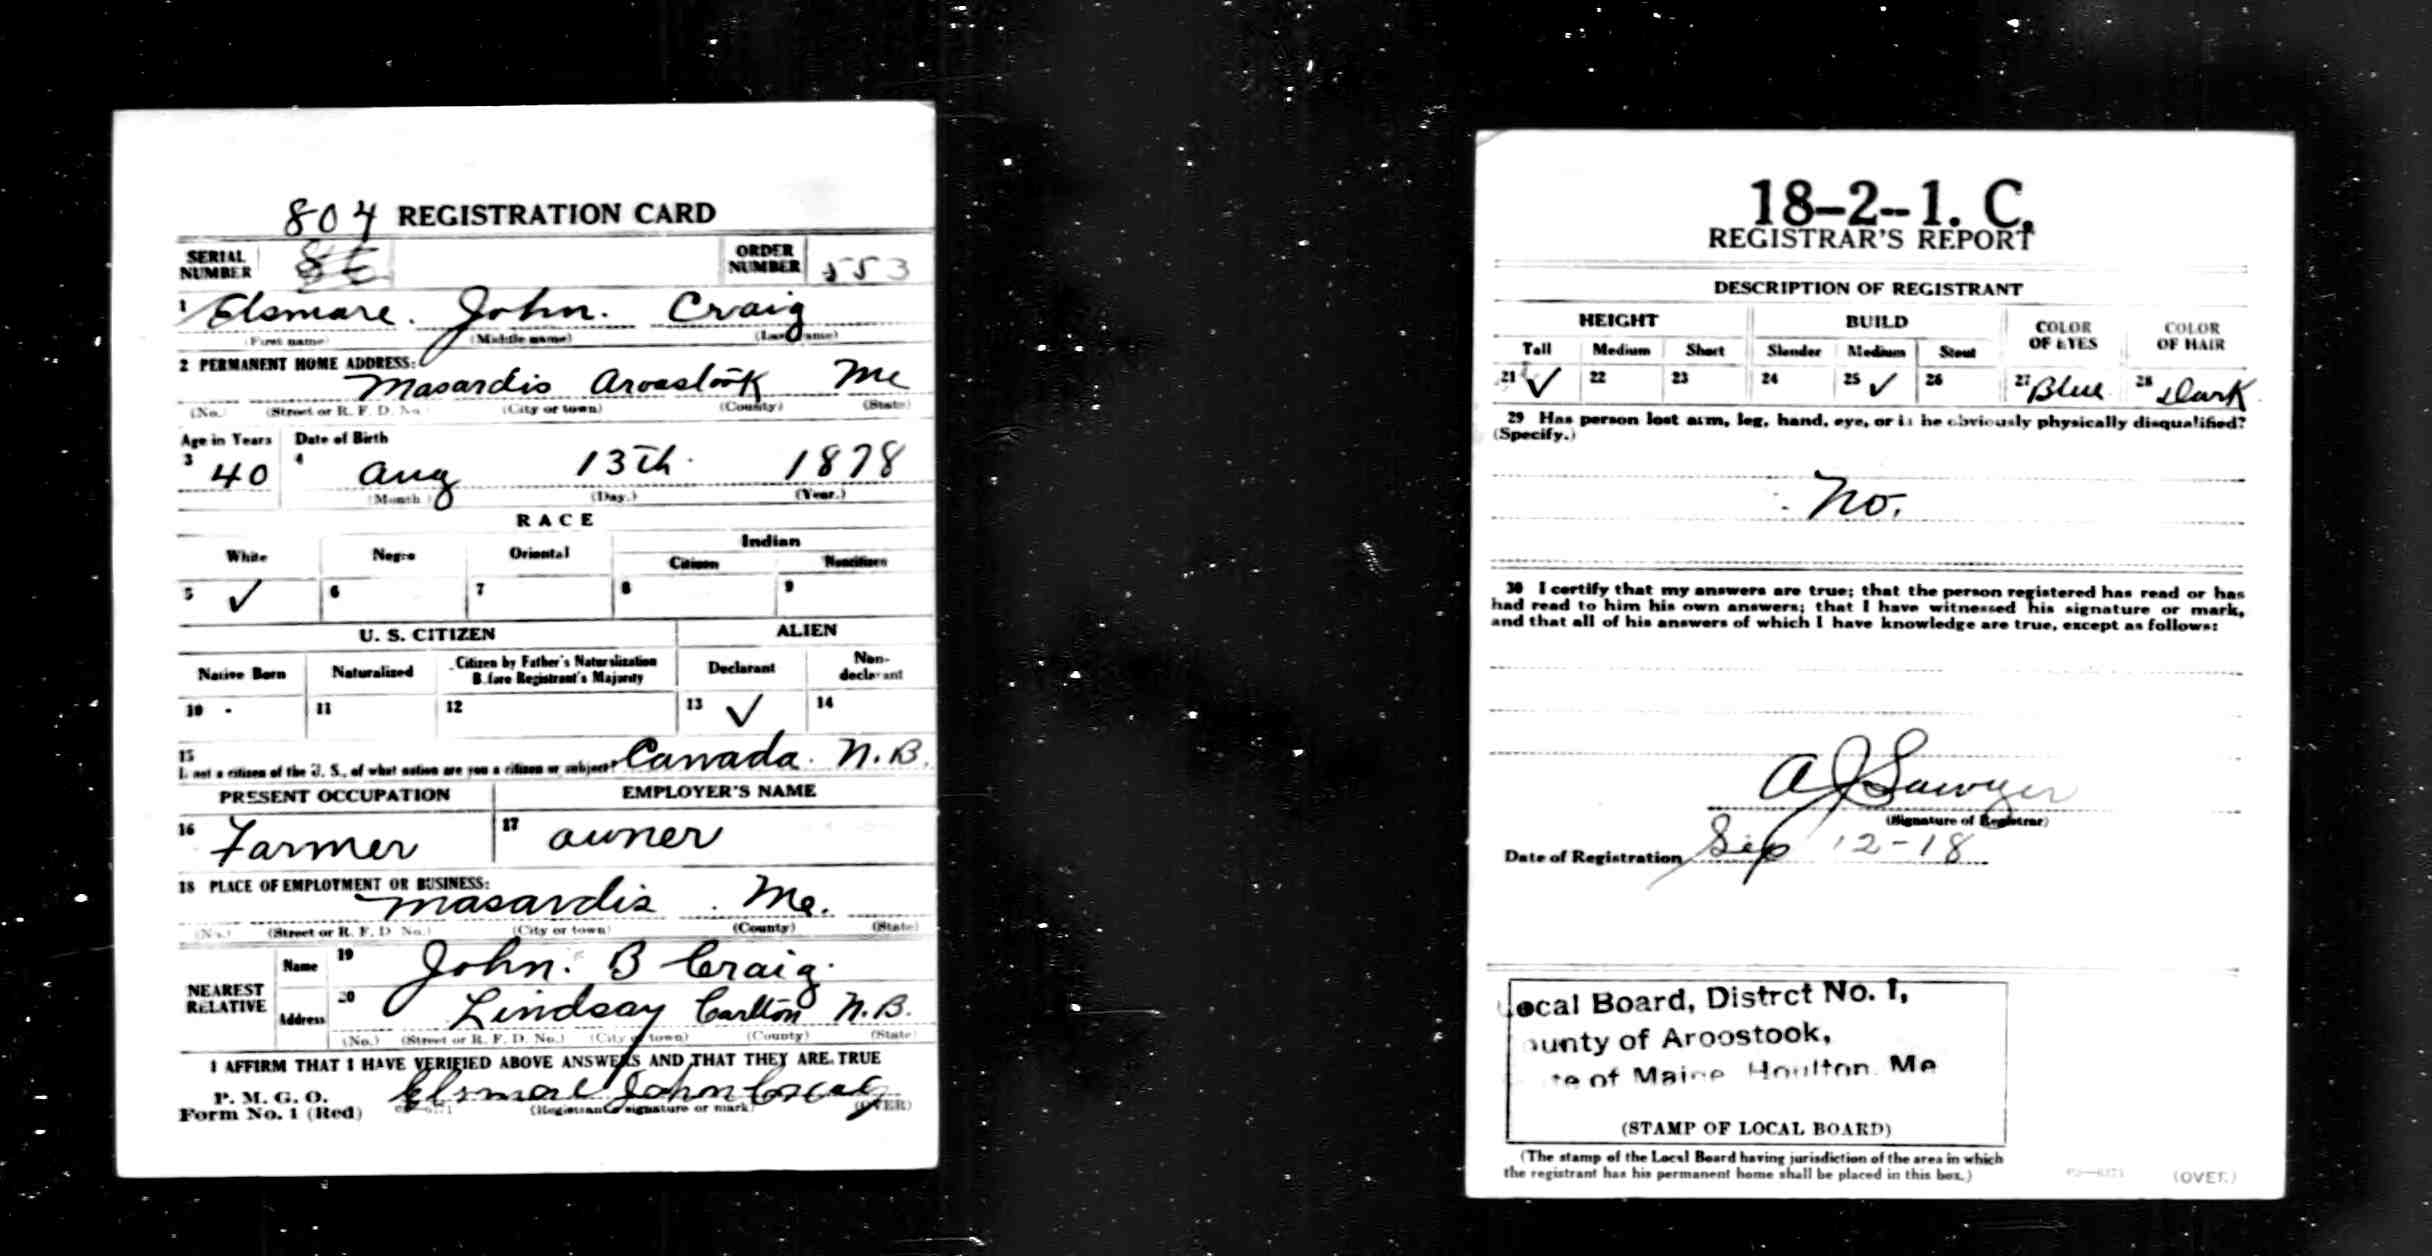 804 REGISTRATION CARD
SERIAL NUMBER
ORDER NUMBER 553
1 Elsmare. John. Craig
(First name) (Middle name) (Last name)
2 PERMANENT HOME ADDRESS:
Masardis Aroostook Me
(No.) (Street or R. F. D. No.) (City or town) (County) (State)
Age in Years Date of Birth
3 40 4 Aug 13th. 1878
(Month.) (Day.) (Year.)
RACE
White Negro Oriental Indian
Citizen Noncitizen
5 ✓ 6 7 8 9
U. S. CITIZEN ALIEN
Native Born Naturalized Citizen by Father's Naturalization Before Registrant's Majority Declarant Non-declarant
10 11 12 13 ✓ 14
15
If not a citizen of the U. S., of what nation are you a citizen or subject? Canada. N.B.
PRESENT OCCUPATION EMPLOYER'S NAME
16 Farmer 17 owner
18 PLACE OF EMPLOYMENT OR BUSINESS:
Masardis Me.
(No.) (Street or R. F. D. No.) (City or town) (County) (State)
NEAREST RELATIVE
Name 19 John. B Craig.
Address 20 Lindsay Carlton N.B.
(No.) (Street or R. F. D. No.) (City or town) (County) (State)
I AFFIRM THAT I HAVE VERIFIED ABOVE ANSWERS AND THAT THEY ARE TRUE
P. M. G. O.
Form No. 1 (Red) Elsmare John Craig
(Registrant's signature or mark) (OVER)
18-2-1. C.
REGISTRAR'S REPORT
DESCRIPTION OF REGISTRANT
HEIGHT BUILD COLOR OF EYES COLOR OF HAIR
Tall Medium Short Slender Medium Stout
21 ✓ 22 23 24 25 ✓ 26 27 Blue 28 Dark
29 Has person lost arm, leg, hand, eye, or is he obviously physically disqualified?
(Specify.)
No.
30 I certify that my answers are true; that the person registered has read or has
had read to him his own answers; that I have witnessed his signature or mark,
and that all of his answers of which I have knowledge are true, except as follows:
A J Sawyer
(Signature of Registrar)
Date of Registration Sep 12-18
Local Board, Distrct No. 1,
County of Aroostook,
State of Maine Houlton Me
(STAMP OF LOCAL BOARD)
(The stamp of the Local Board having jurisdiction of the area in which
the registrant has his permanent home shall be placed in this box.)
(OVER)